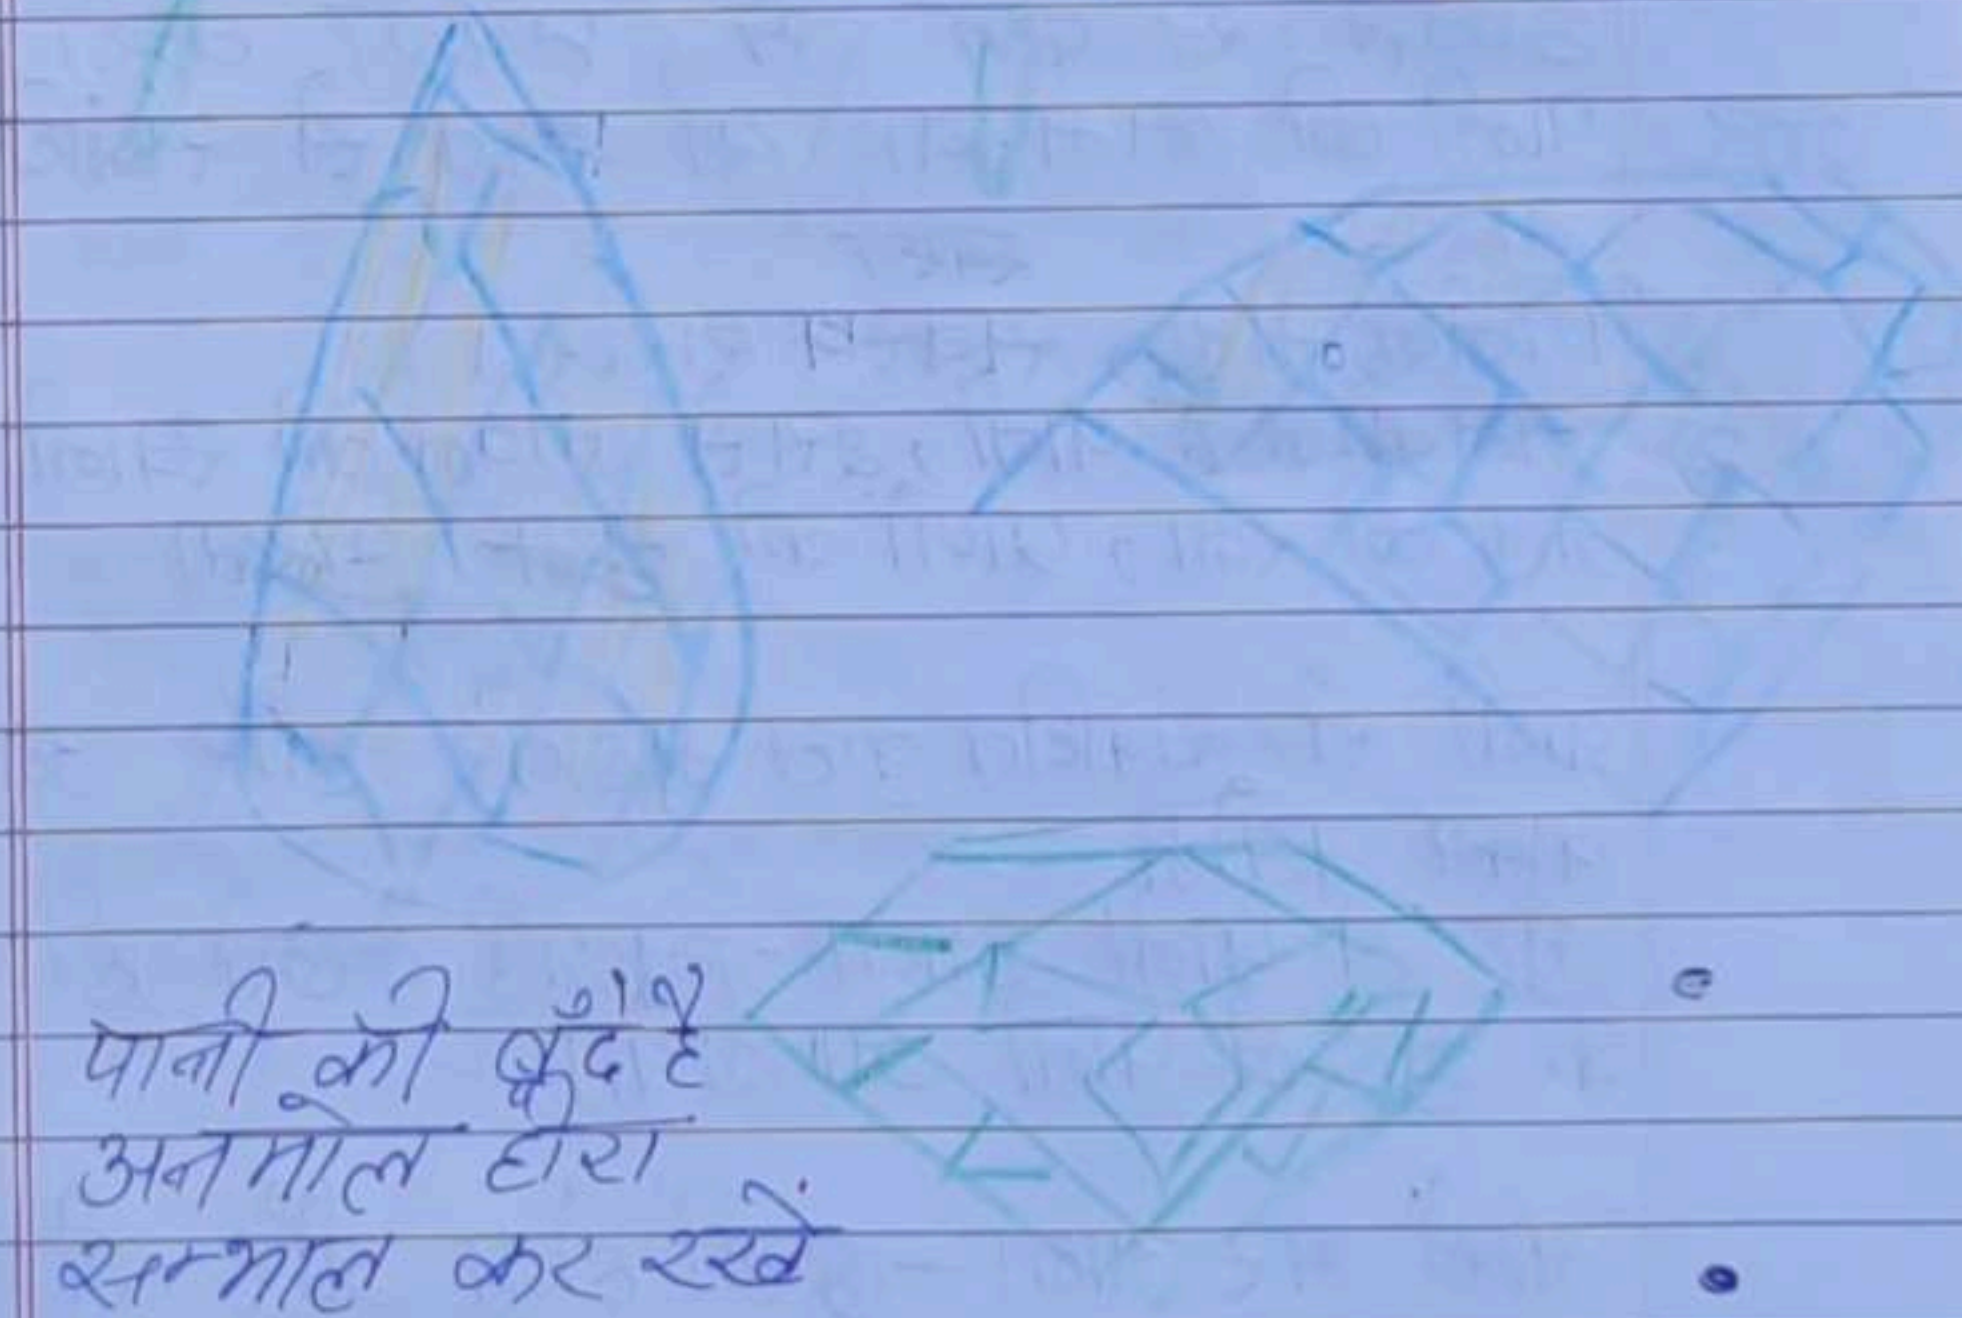 पानी की बूँदें है
अनमोल हीरा
सम्भाल कर रखें